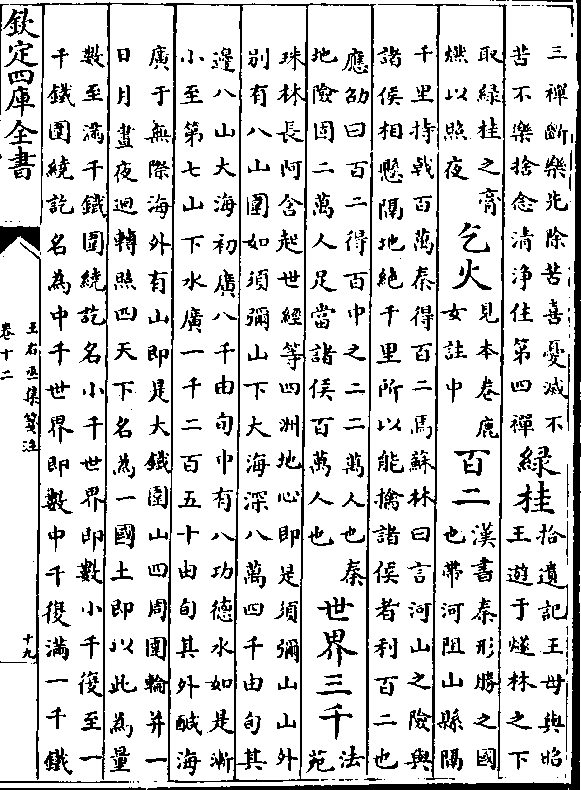 三禪斷樂先除苦喜憂滅不
苦不樂捨念清淨住第四禪
緑桂
拾遺記王母與昭
王遊于燧林之下
取緑桂之膏
燃以照夜
乞火
見本卷鹿
女註中
百二
漢書秦形勝之國
也帶河阻山縣隔
千里持戟百萬秦得百二焉蘇林曰言河山之險與
諸侯相懸隔地絶千里所以能擒諸侯者利百二也
應劭曰百二得百中之二二萬人也秦
地險固二萬人足當諸侯百萬人也
世界三千
法
苑
珠林長阿含起世經等四洲地心即是須彌山山外
别有八山圍如須彌山下大海深八萬四千由旬其
邉八山大海初廣八千由旬中有八功德水如是漸
小至第七山下水廣一千二百五十由旬其外鹹海
廣于無際海外有山即是大鐵圍山四周圍輪并一
日月晝夜迴轉照四天下名為一國土即以此為量
數至滿千鐵圍繞訖名小千世界即數小千復至一
千鐵圍繞訖名為中千世界即數中千復滿一千鐵
欽定四庫全書
王右丞集箋注
卷十二
十九